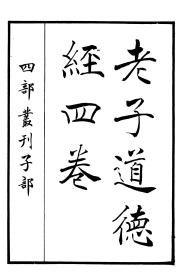 老子道德
經四卷
四部叢刊子部